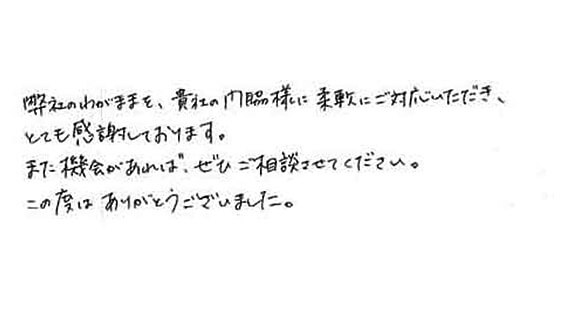 弊社のわがままを、貴社の内脇様に柔軟にご対応いただき、
とても感謝しております。
また機会があれば、ぜひご相談させてください。
この度はありがとうございました。